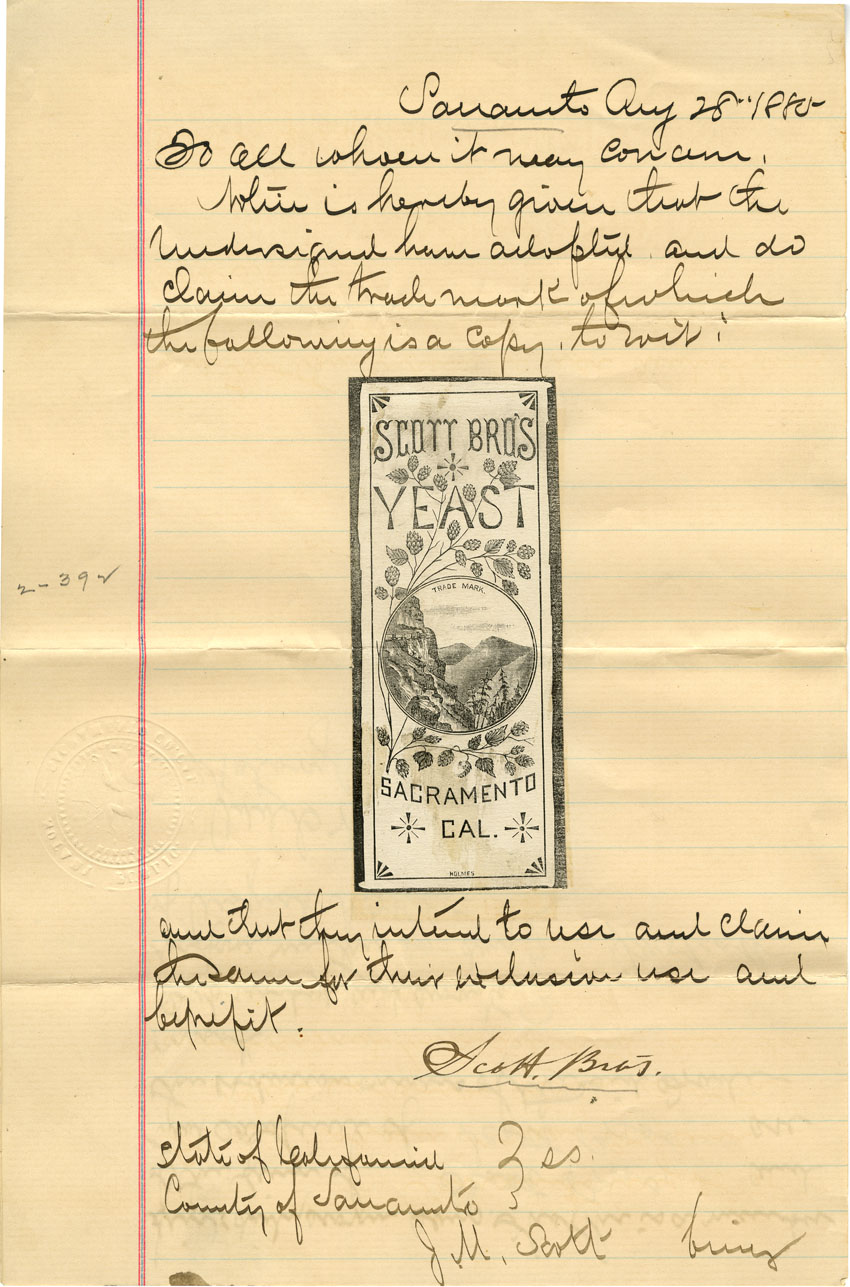 Sacramento Aug 28" 1885
To all whom it may concern.
Notice is hereby given that the
undersigned have adopted and do
claim the trade mark of which
the following is a copy, to wit:
SCOTT BRO'S
YEAST
TRADE MARK.
2-392
SACRAMENTO
CAL.
HOLMES
and that they intend to use and claim
the same for their exclusive use and
benefit.
Scott. Bros.
State of California } ss.
County of Sacramento
J. M. Scott being